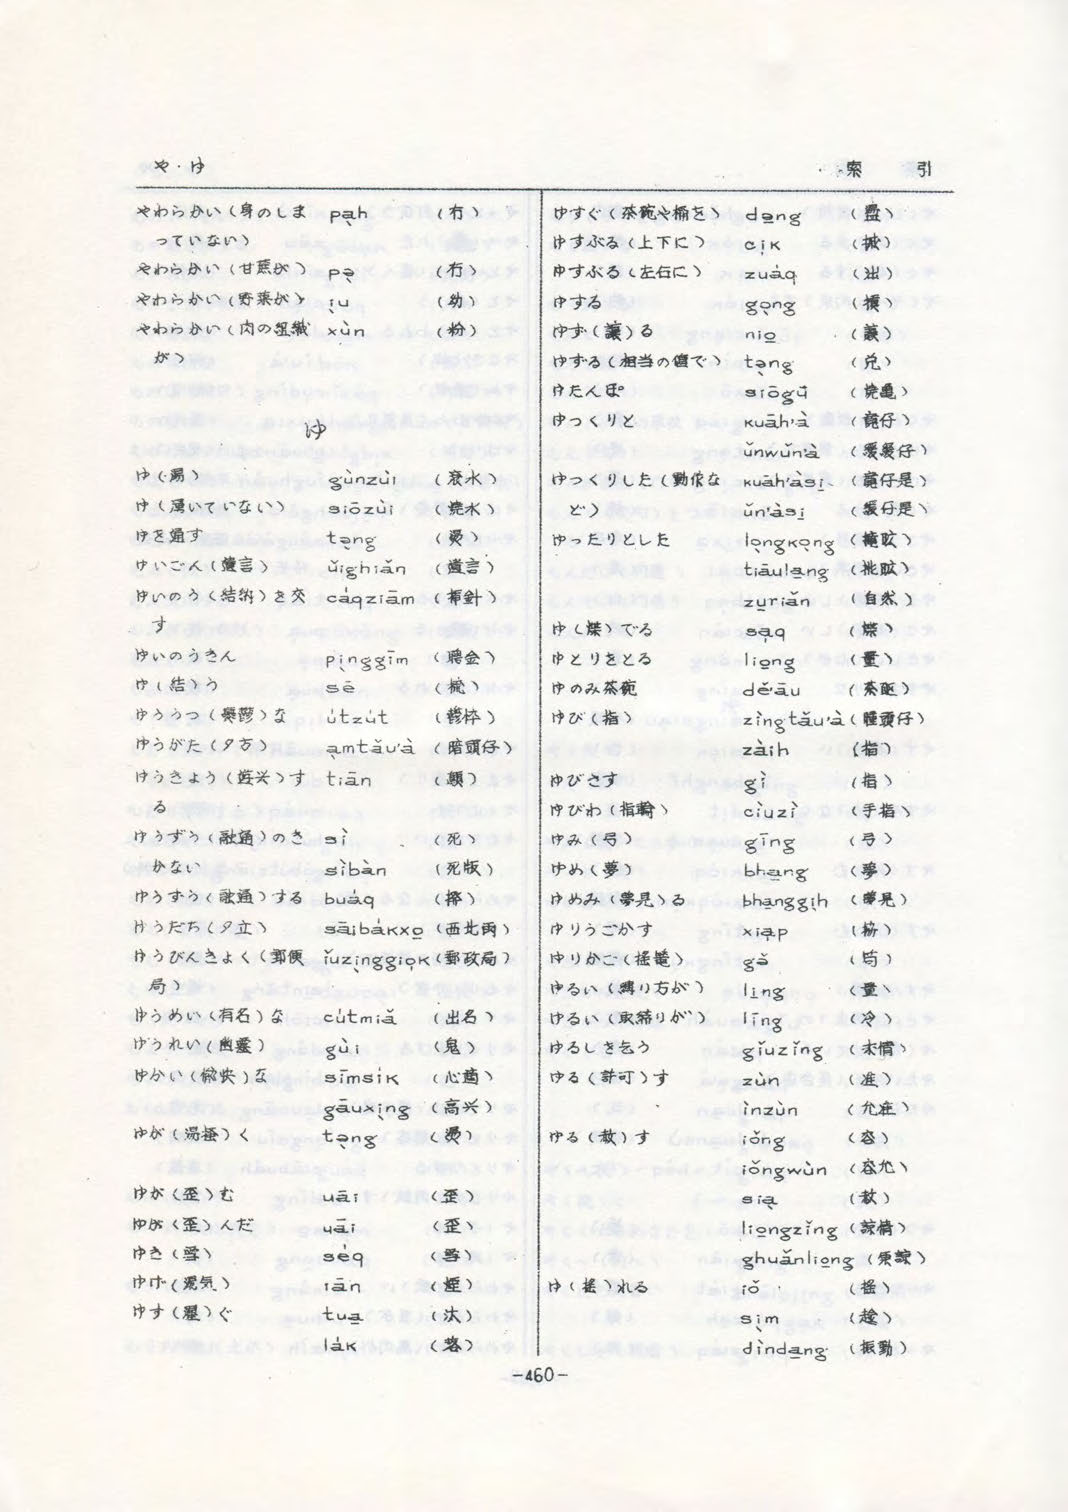 や・ゆ
索 引
やわらかい(身のしま pa̱h (冇)
っていない)
やわらかい(甘蔗が) pə̱ (冇)
やわらかい(野菜が) i̱u (幼)
やわらかい(肉の組織 xùn (粉)
が)
ゆ
ゆ(湯) gùnzùi (滾水)
ゆ(湧いていない) siōzùi (焼水)
ゆを通す tə̱ng (燙)
ゆいごん(遺言) ǔighiǎn (遺言)
ゆいのう(結納)を交 cáqziām (插針)
す
ゆいのうきん pi̱nggīm (聘金)
ゆ(結)う sē (梳)
ゆううつ(憂鬱)な útzút (鬱卒)
ゆうがた(夕方) a̱mtǎu'à (暗頭仔)
ゆうきょう(遊興)す tiān (顛)
る
ゆうずう(融通)のき sì (死)
かない sìbàn (死版)
ゆうずう(融通)する buáq
ゆうだち(夕立) sāibákxo̱ (西北雨)
ゆうびんきょく(郵便 ǐuzi̱nggio̱k (郵政局)
局)
ゆうめい(有名)な cútmiǎ (出名)
ゆうれい(幽霊) gùi (鬼)
ゆかい(愉快)な sīmsík (心適)
gāuxi̱ng (高兴)
ゆが(湯掻)く tə̱ng (燙)
ゆが(歪)む uāi (歪)
ゆが(歪)んだ uāi (歪)
ゆき(雪) séq (雪)
ゆげ(湯気) iān (煙)
ゆす(濯)ぐ tua̱ (汰)
lák (落)
ゆすぐ(茶碗や桶を) də̱ng (盪)
ゆすぶる(上下に) ci̱k
ゆすぶる(左右に) zuáq
ゆする go̱ng
ゆず(譲)る nio̱ (譲)
ゆずる(相当の値で) tə̱ng (兌)
ゆたんぽ siōgū (焼亀)
ゆっくりと kuāh'à (寛仔)
ǔnwǔn'à (緩緩仔)
ゆっくりした(動作な kuāh'àsi̱ (寛仔是)
ど) ǔn'àsi̱ (緩仔是)
ゆったりとした lo̱ngko̱ng
tiāula̱ng
zu̱riǎn (自然)
ゆ(煠)でる sa̱q (煠)
ゆとりをとる lio̱ng (量)
ゆのみ茶碗 dě'āu (茶甌)
ゆび(指) zìngtǎu'à (腫頭仔)
zàih (指)
ゆびさす gì (指)
ゆびわ(指輪) ciùzì (手指)
ゆみ(弓) gīng (弓)
ゆめ(夢) bha̱ng (夢)
ゆめみ(夢見)る bha̱nggi̱h (夢見)
ゆりうごかす xia̱p
ゆりかご(揺籠) gǎ
ゆるい(縛り方が) li̱ng (量)
ゆるい(取締りが) līng (冷)
ゆるしを乞う giǔzǐng (求情)
ゆる(許可)す zùn (准)
ìnzùn (允准)
ゆる(赦)す iǒng (容)
iǒngwùn (容允)
sia̱ (赦)
lio̱ngzǐng (諒情)
ghuǎnlio̱ng (原諒)
ゆ(揺)れる iǒ (揺)
si̱m
dìnda̱ng (振動)
-460-